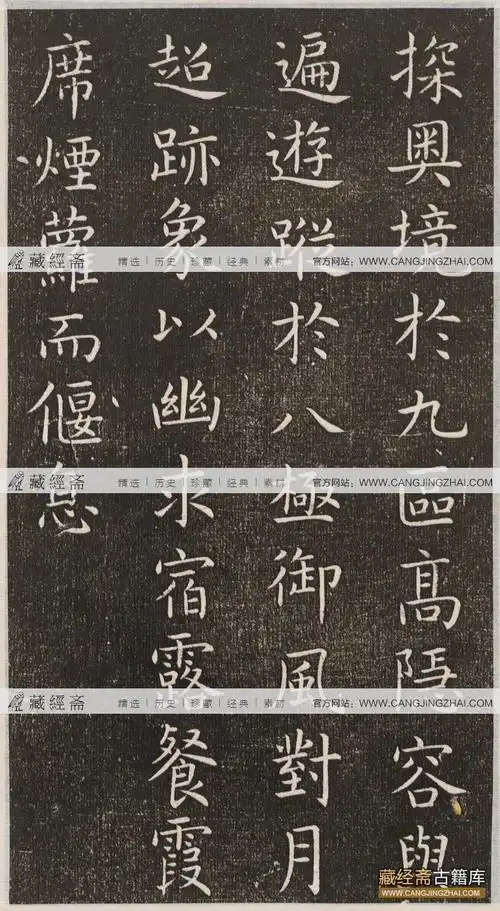 探奧境於九區高隱容與
遍遊蹤於八極御風對月
超跡象以幽求宿露餐霞
席煙蘿而偃息
藏經斋 精选 | 历史 | 珍藏 | 经典 | 素材 官方网站:WWW.CANGJINGZHAI.COM
藏經斋 精选 | 历史 | 珍藏 | 经典 | 素材 官方网站:WWW.CANGJINGZHAI.COM
藏經斋 精选 | 历史 | 珍藏 | 经典 | 素材 官方网站:WWW.CANGJINGZHAI.COM
藏经斋古籍库
WWW.CANGJINGZHAI.COM